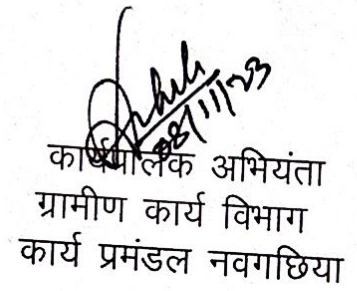 08/11/23
कार्यपालक अभियंता
ग्रामीण कार्य विभाग
कार्य प्रमंडल नवगछिया